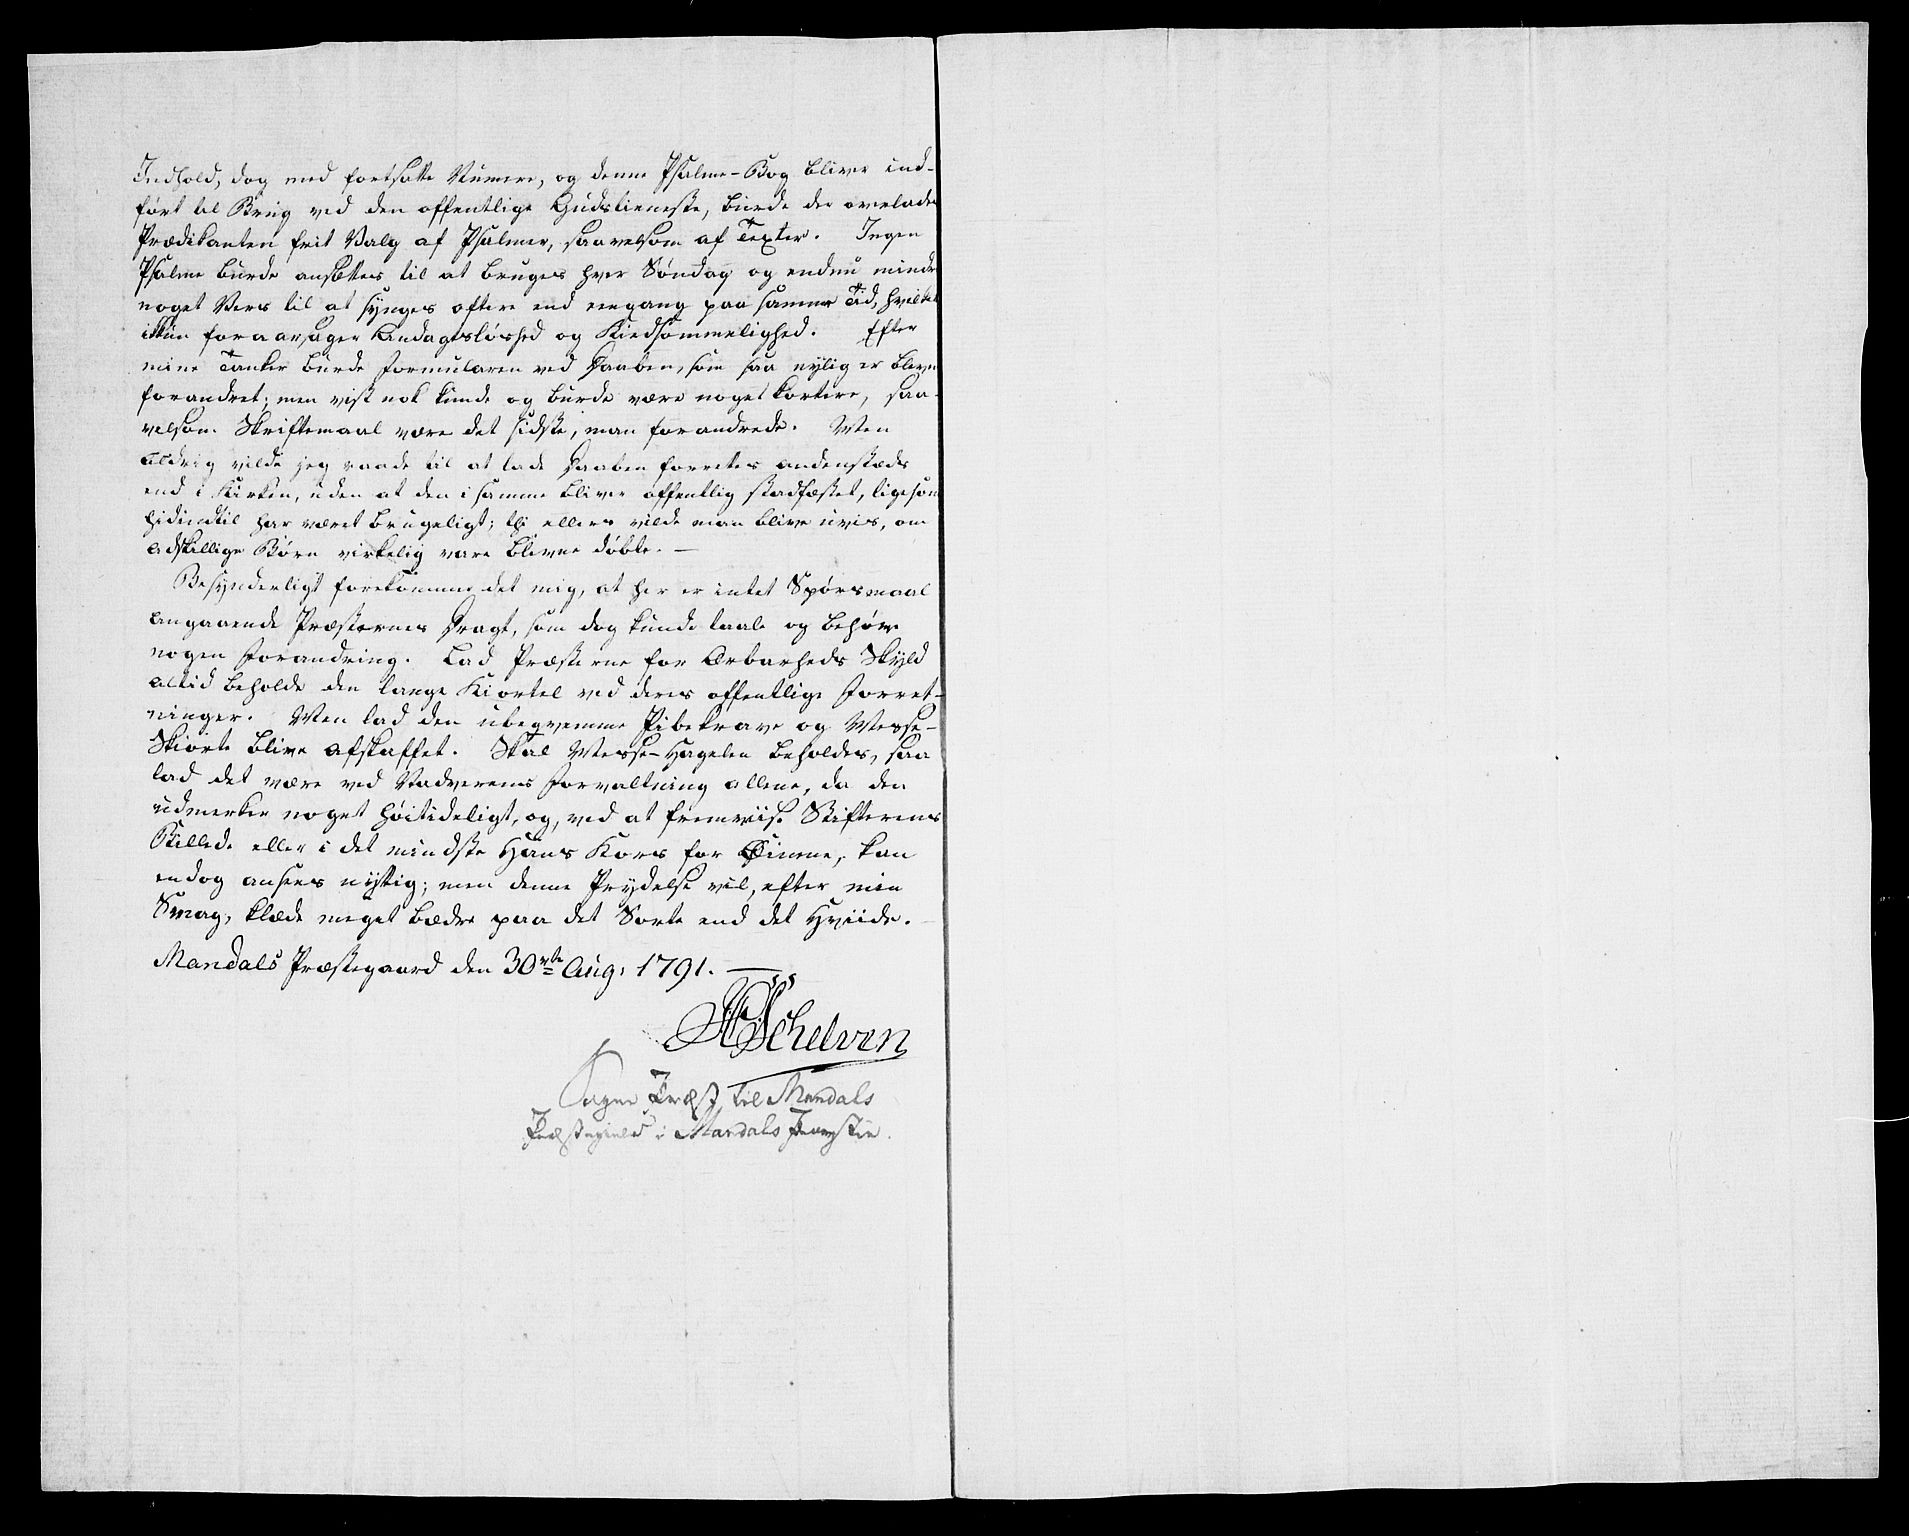 Indhold, dog med fortsatte Numere, og denne Psalme-Bog bliver ind-
ført til Brug ved den offentlige Gudstieneste, burde der overlades
Prædikanten frit Valg af Psalmer, saavelsom af Texter. Ingen
Psalme burde ansættes til at bruges hver Søndag og endnu mindre
noget Vers til at synges oftere end eengang paa samme Tid, hvilket
ikkun foraarsager Andagtsløshed og Kiedsommelighed. Efter
mine Tanker burde Formularen ved Daaben, som saa nylig er bleven
forandret; men vist nok kunde og burde være noget kortere, saa-
velsom Skriftemaal være det sidste, man forandrede. Men
aldrig vilde jeg raade til at lade Daaben forrettes andenstæds
end i Kirken, uden at den i samme bliver offentlig stadfæstet, ligesom
hidindtil har været brugeligt; thi ellers vilde man blive uvis, om
adskillige Børn virkelig vare blevne døbte. —
Besynderligt forekommer det mig, at her er intet Spørsmaal
angaaende Præsternes Dragt, som dog kunde taale og behøve
nogen Forandring. Lad Præsterne for Ærbarheds Skyld
altid beholde den lange Kiortel ved deres offentlige Forret-
ninger. Men lad den ubeqvemme Pibekrave og Messe-
Skiorte blive afskaffet. Skal Messe-Hagelen beholdes, saa
lad det være ved Nadverens Forvaltning allene, da den
udmerker noget høitideligt, og, ved at fremviise Stifterens
Billede eller i det mindste Hans Kors for Øinene, kan
endog ansees nyttig; men denne Prydelse vil, efter min
Smag, klæde meget bædre paa det Sorte end det Hviide.
Mandals Præstegaard den 30te Aug: 1791. —
Schelven
Sogne Præst til Mandals
Præstegield i Mandals Provstie.